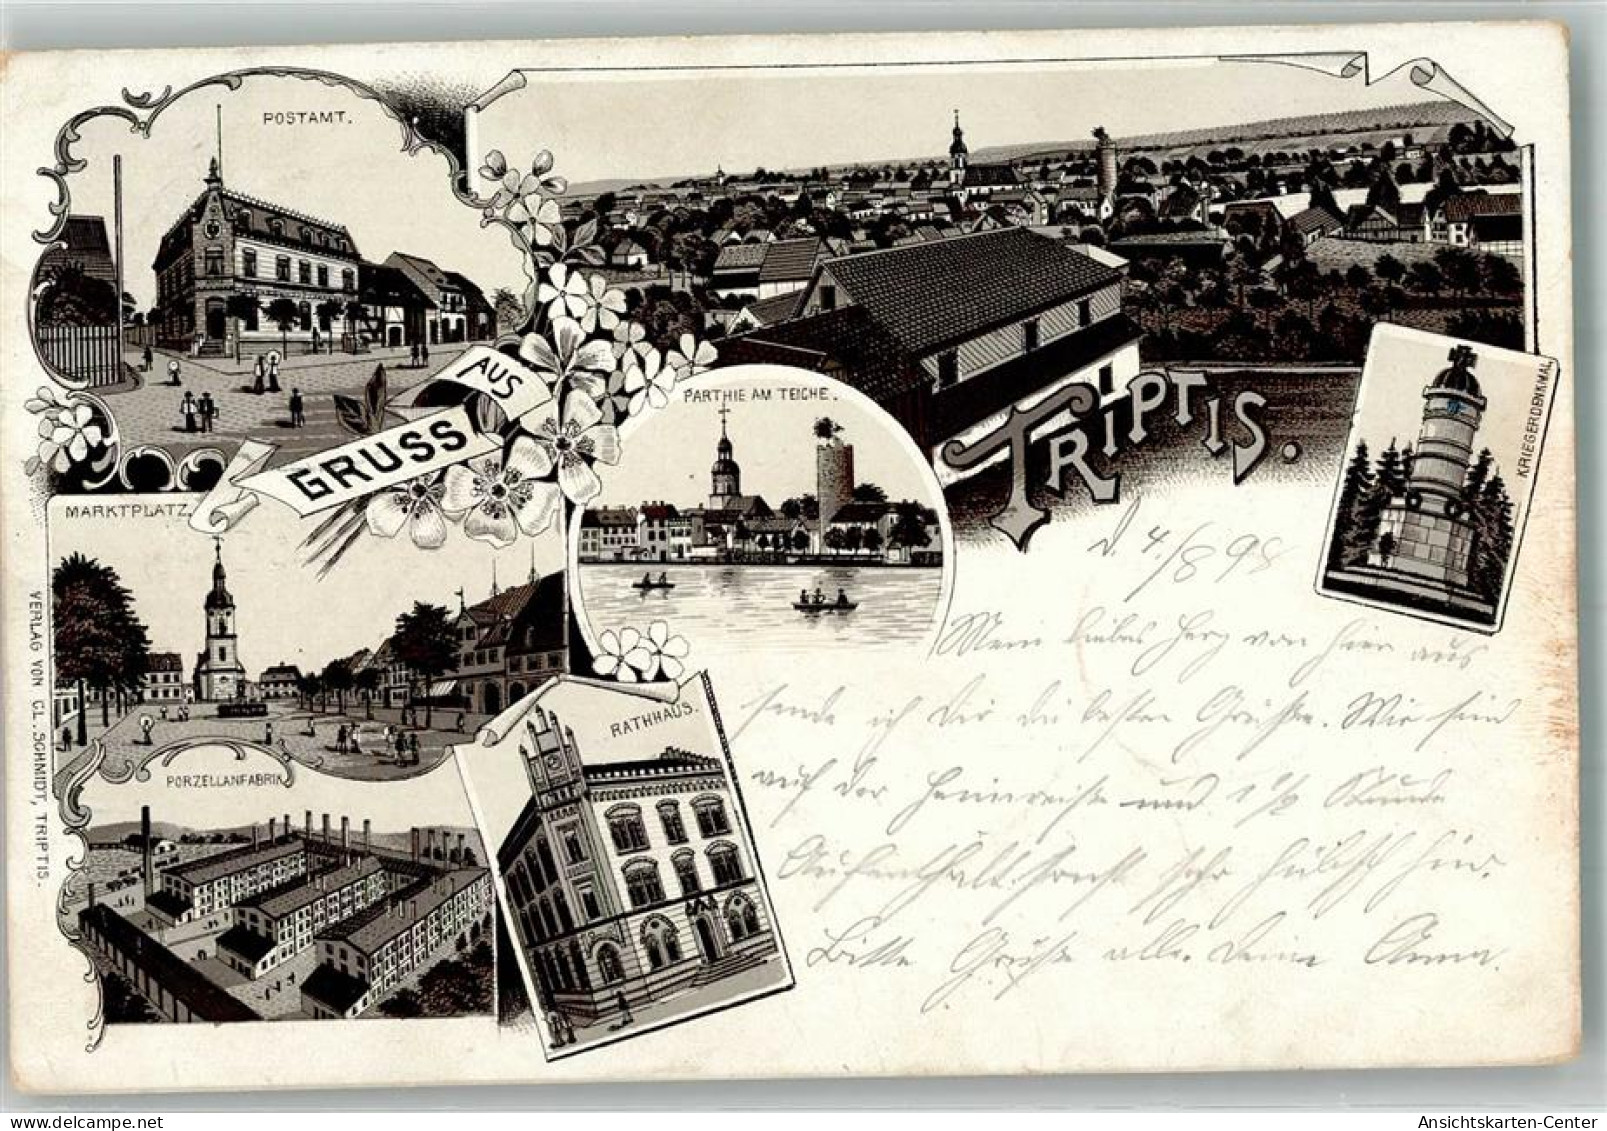 POSTAMT.
GRUSS AUS
TRIPTIS.
PARTHIE AM TEICHE.
KRIEGERDENKMAL
MARKTPLATZ.
RATHHAUS.
PORZELLANFABRIK
VERLAG VON CL. SCHMIDT, TRIPTIS.
D. 4./8 98
Mein liebes Herz von hier aus
sende ich Dir die besten Grüße. Wir sind
auf der Heimreise und 1 1/2 Stunde
Aufenthalt sonst sehr hübsch hier.
Bitte Grüße alle. Deine Anna.
AnsichtsKarten-Center